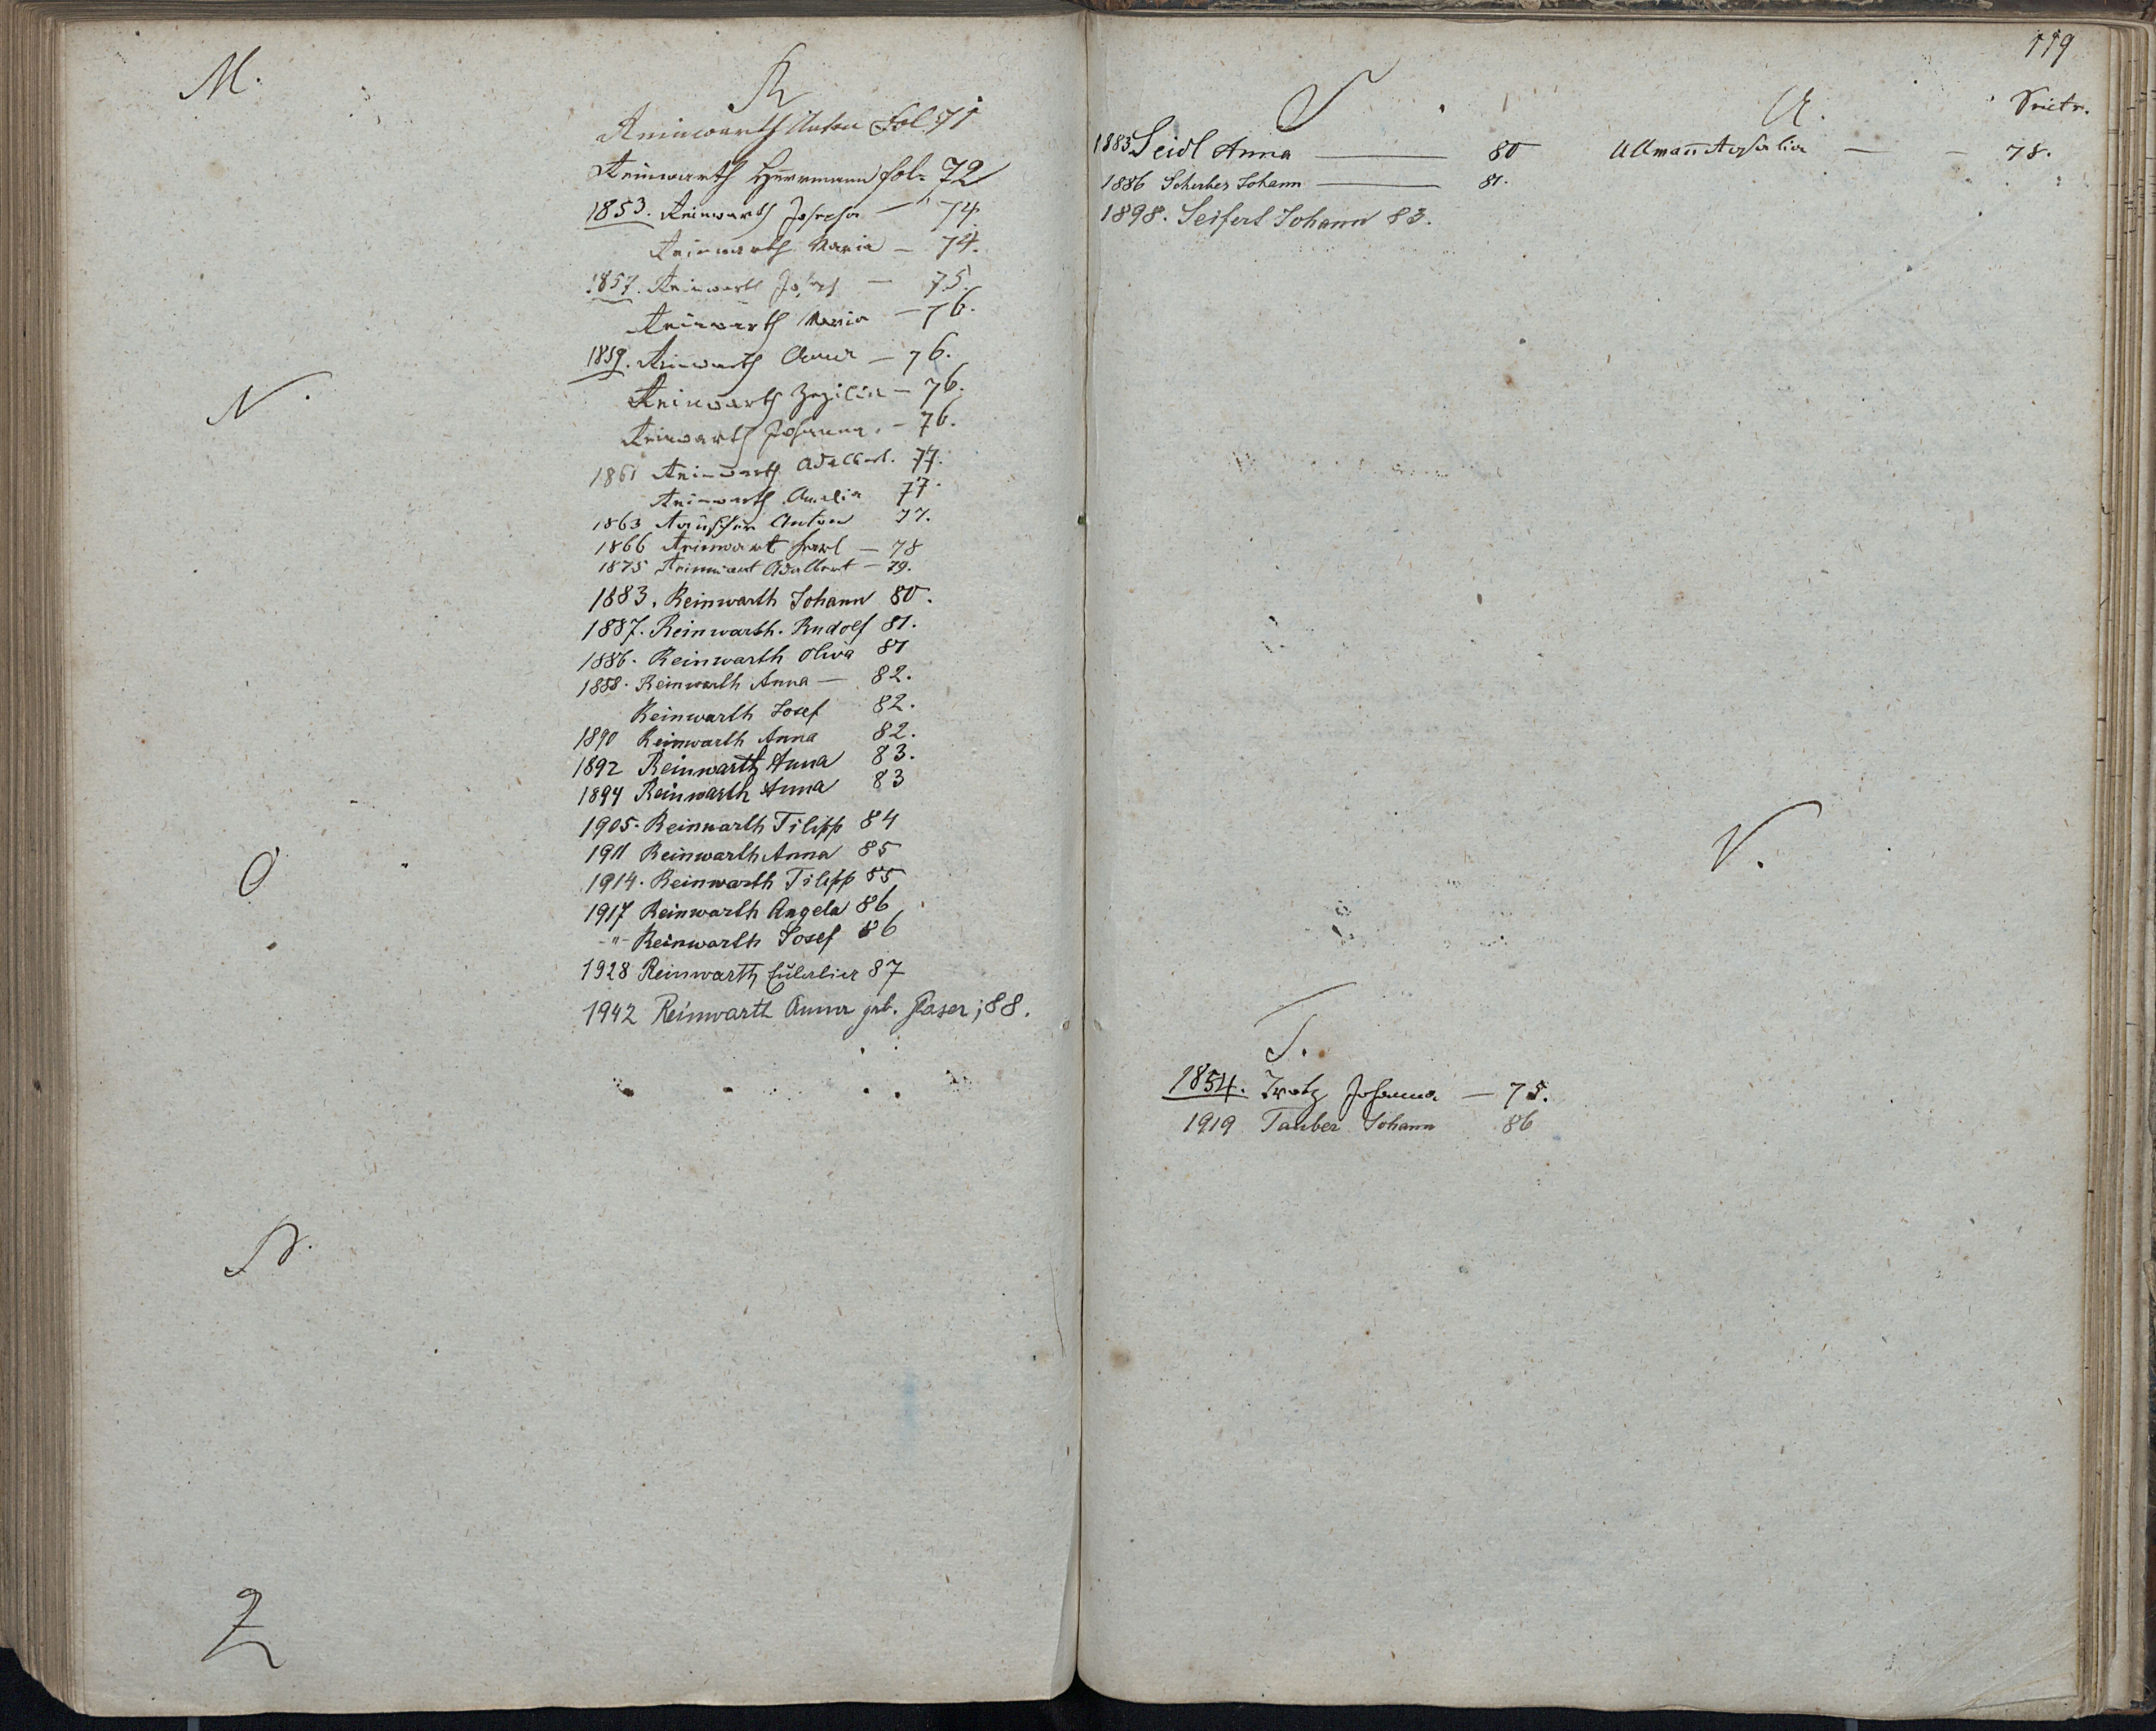 M.
N.
O
P.
Q
R
Reinwarth Anton Fol. 71
Reinwarth Herrmann fol. 72
1853. Reinwarth Josepha — 74
Reinwarth Maria — 74.
1857. Reinwarth Joseph — 75.
Reinwarth Maria — 76.
1859. Reinwarth Anna — 76.
Reinwarth Zezilia — 76.
Reinwarth Johanna — 76.
1861 Reinwarth Adalbert. 77.
Reinwarth Amalia 77.
1863 Anton 77.
1866 Reinwart Karl — 78
1875 Reinwart Adalbert — 79.
1883. Reinwarth Johann 80.
1887. Reinwarth. Rudolf 81.
1886. Reinwarth Oliva 81
1888. Reinwarth Anna — 82.
Reinwarth Josef 82.
1890 Reinwarth Anna 82.
1892 Reinwarth Anna 83.
1894 Reinwarth Anna 83
1905. Reinwarth Filipp 84
1911 Reinwarth Anna 85
1914. Reinwarth Filipp 85
1917 Reinwarth Angela 86
-"- Reinwarth Josef 86
1928 Reinwarth 87
1942 Reinwarth Anna geb. Glaser; 88.
119
S
1883 Seidl Anna — 80
1886 Scherber Johann — 81.
1898. Seifert Johann 83.
T.
1854. Johanna — 75.
1919 Tauber Johann 86
U.
Ullmann Rosalia — — 78.
V.